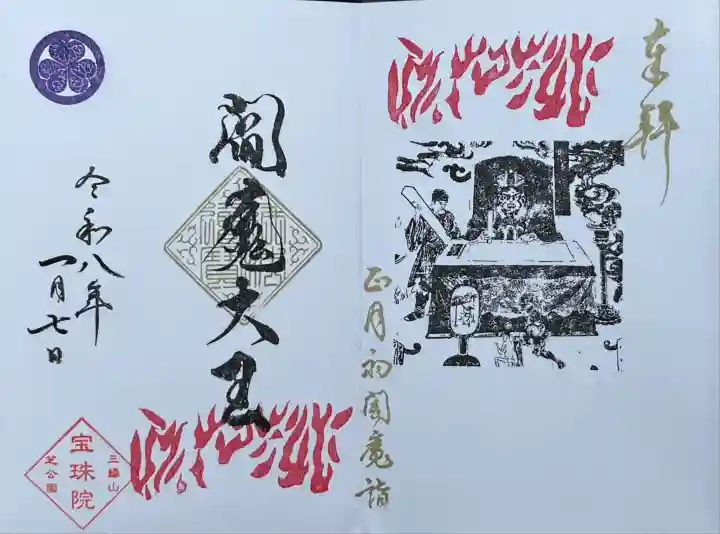 奉拝
正月初閻魔詣
閻魔大王
令和八年
一月七日
三縁山
宝珠院
芝公園